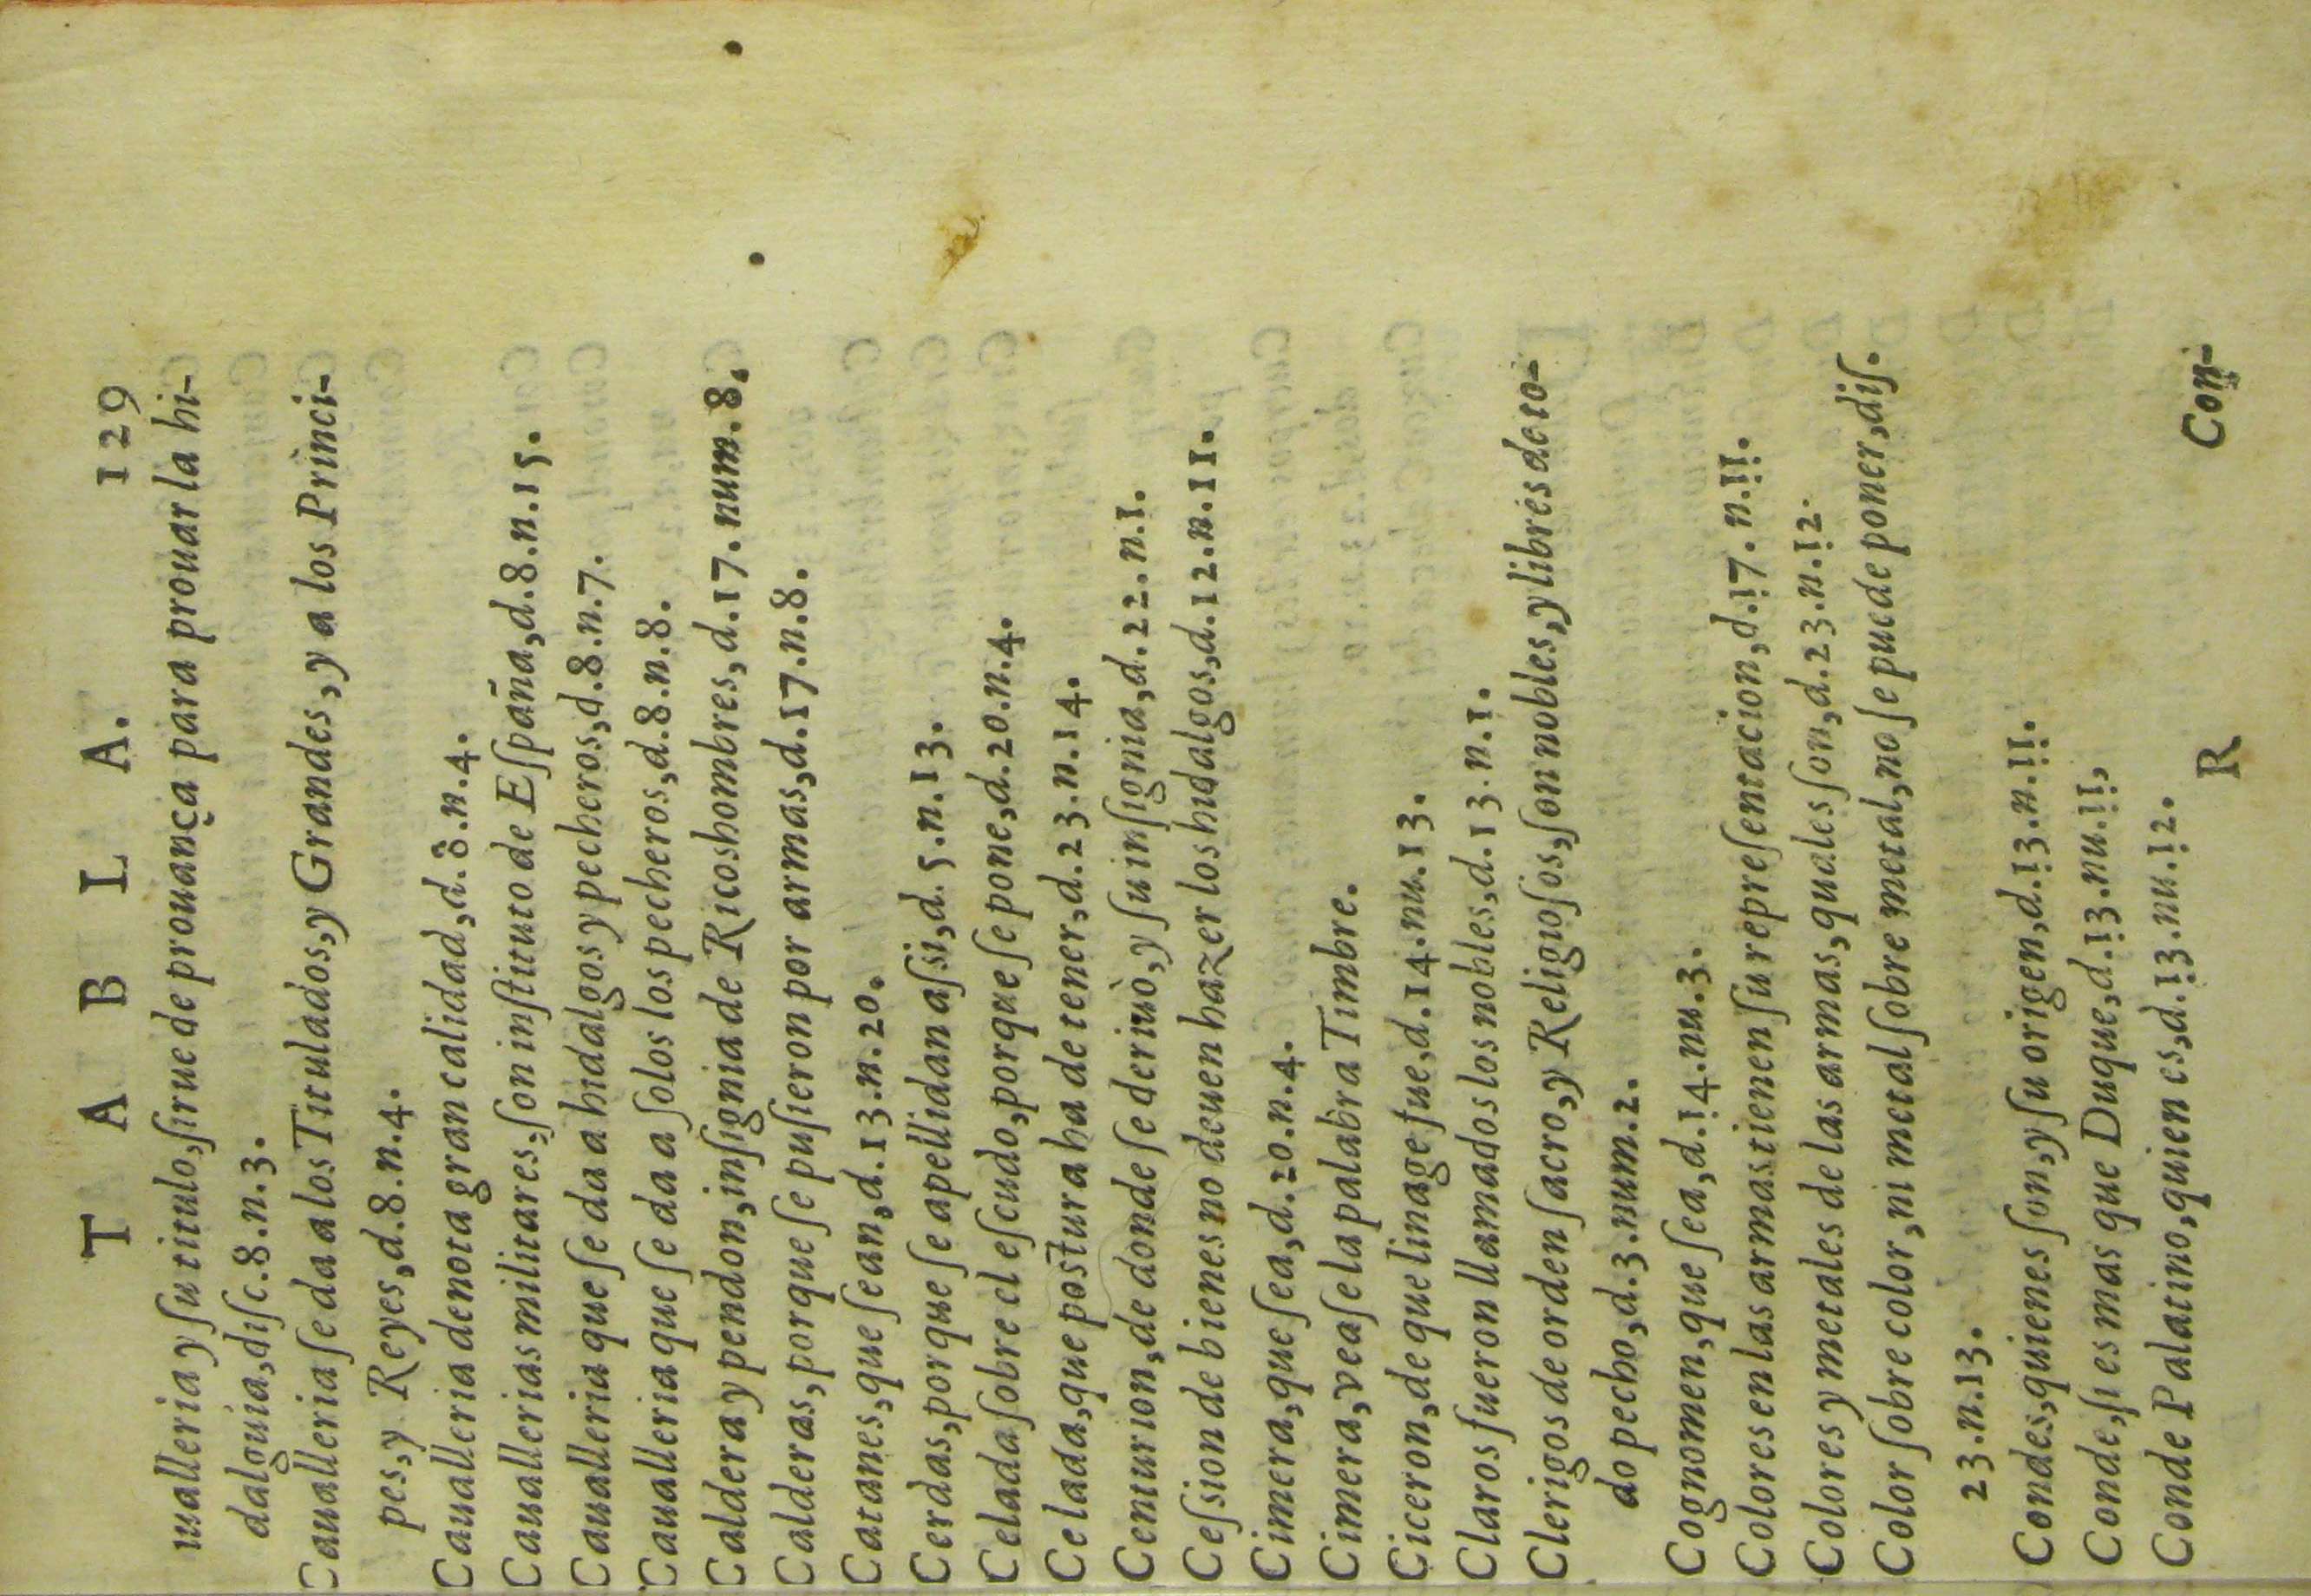 T A B L A. 129
ualleria y ſu titulo, ſirue de prouança para prouar la hi-
dalguia, diſc.8.n.3.
Caualleria ſe da a los Titulados, y Grandes, y a los Princi-
pes, y Reyes, d.8.n.4.
Caualleria denota gran calidad, d.8.n.4.
Cauallerias militares, ſon inſtituto de Eſpaña, d.8.n.15.
Caualleria que ſe da a hidalgos y pecheros, d.8.n.7.
Caualleria que ſe da a ſolos los pecheros, d.8.n.8.
Caldera y pendon, inſignia de Ricoshombres, d.17. num.8.
Calderas, porque ſe puſieron por armas, d.17.n.8.
Catanes, que ſean, d.13.n.20.
Cerdas, porque ſe apellidan aſsi, d.5.n.13.
Celada ſobre el eſcudo, porque ſe pone, d.20.n.4.
Celada, que postura ha de tener, d.23.n.14.
Centurion, de donde ſe deriuò, y ſu inſignia, d.22.n.1.
Ceſsion de bienes no deuen hazer los hidalgos, d.12.n.11.
Cimera, que ſea, d.20.n.4.
Cimera, veaſe la palabra Timbre.
Ciceron, de que linage fue, d.14.nu.13.
Claros fueron llamados los nobles, d.13.n.1.
Clerigos de orden ſacro, y Religioſos, ſon nobles, y libres de to-
do pecho, d.3.num.2.
Cognomen, que ſea, d.14.nu.3.
Colores en las armas tienen ſu repreſentacion, d.17. n.11.
Colores y metales de las armas, quales ſon, d.23.n.12.
Color ſobre color, ni metal ſobre metal, no ſe puede poner, diſ.
23.n.13.
Condes, quienes ſon, y ſu origen, d.13.n.11.
Conde, ſi es mas que Duque, d.13.nu.11,
Conde Palatino, quien es, d.13.nu.12.
R Con-